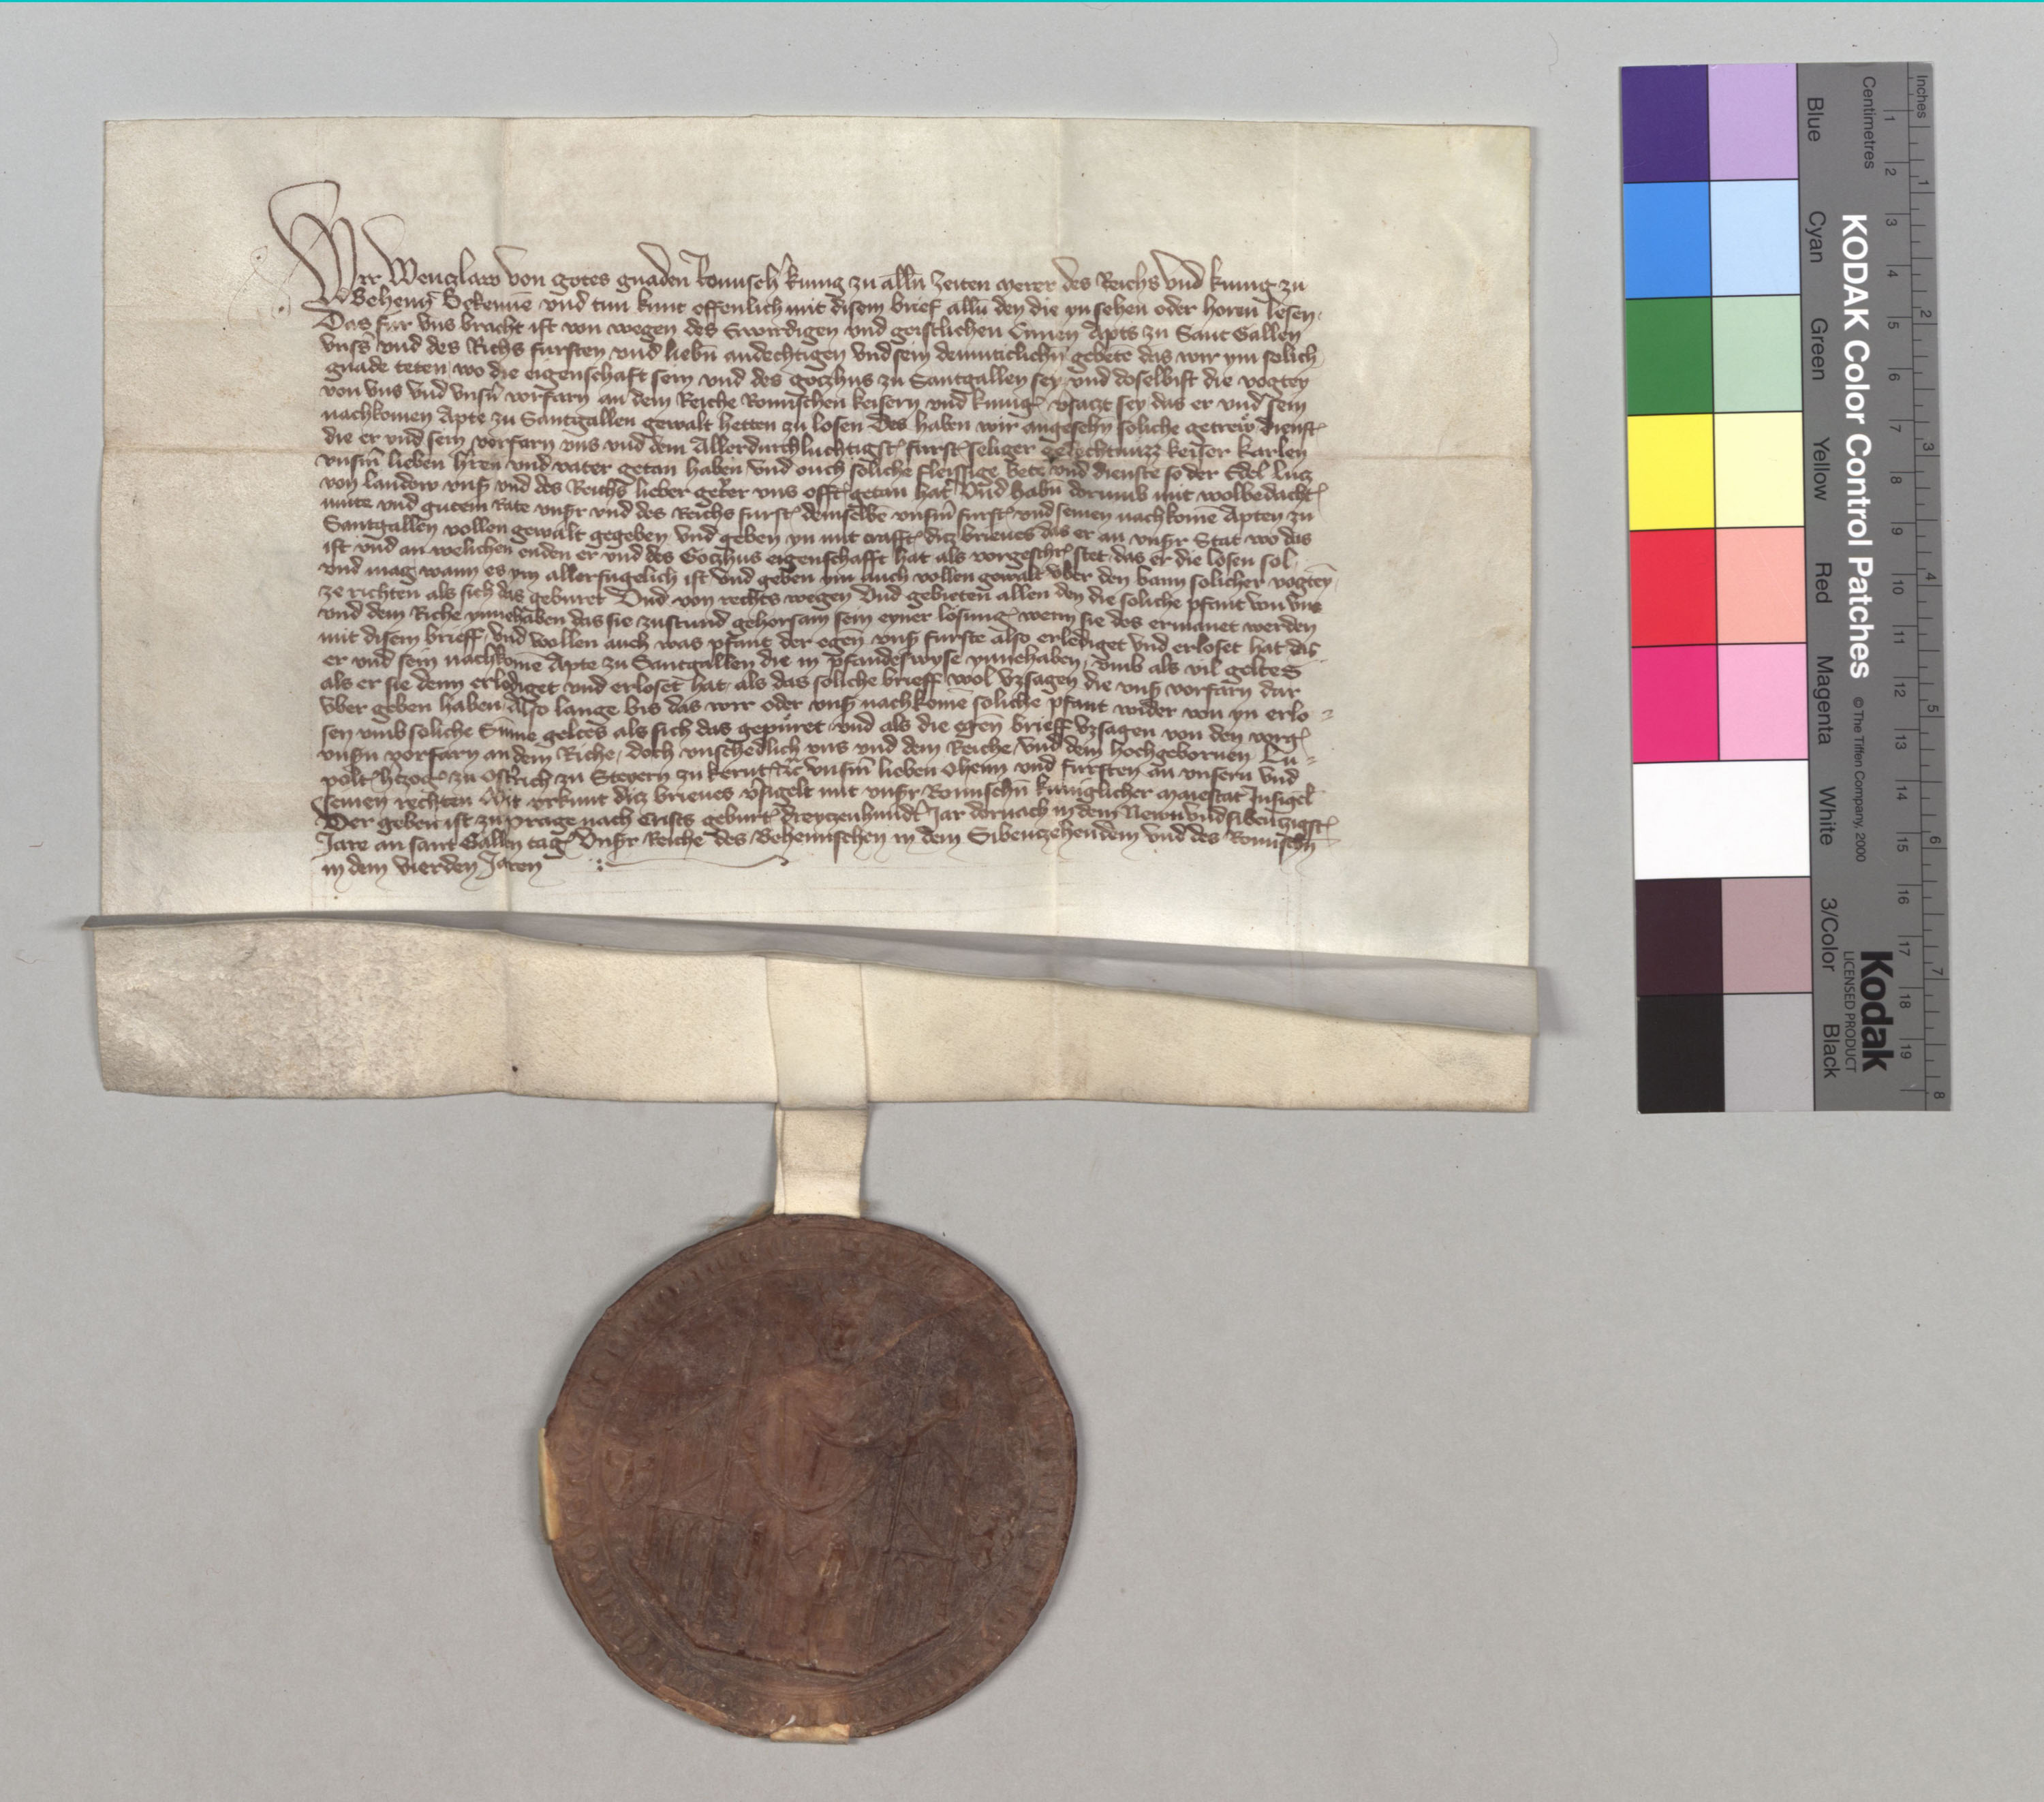 Wir Wenczlaw von gotes gnaden Romisch͛ kunig zu alln̄ zeiten merer des Reichs und kunig zu
Behem̄ Bekennē und tun kunt offenlich mit disem brief alln̄ den die yn sehen oder horen lesen
Das fur uns bracht ist von wegen des Erwirdigen und geistlichen Cunen Apts zu Sant Gallen
unss͛ und des Richs fursten und liebn̄ andechtigen und sein demuticlichn̄ gebete das wir ym solich
gnade teten, wo die eigenschaft sein und des goczhus zu Santgallen sey und doselbist die vogtey
von uns und unsn̄ vorfarn an dem Reiche Romischen keisern und kuniḡ vsaczt sey das er und sein
nachkomen Apte zu Santgallen gewalt hetten zu losen Des haben wir angesehn soliche getrew dienst̄
die er und sein vorfarn uns und dem Allerdurchluchtigst̄ furst̄ seliger gedechtnuzz keiser karlen
unsm̄ lieben h͛ren und vater getan haben und ouch soliche fleissige bete und dienste so der Edel Lucz
von landow uns͛ und des Reichs lieber get͛er uns offt̄ getan hat Und habn̄ dorumb mit wolbedacht̄
mute und gutem Rate uns͛r und des Reichs furst̄ demselbē unsm̄ furst̄ und seinen nachkomē Apten zu
Santgallen vollen gewalt gegeben und geben yn mit crafft̄ dicz brieues das er an uns͛r Stat wo das
ist und an welichen enden er und des Goczhus eigenschafft hat als vorgeschr̄ stet das er die losen sol
und mag wann es ym allerfugelich ist Und geben ym auch vollen gewalt uber den bann solicher vogtey
ze richten als sich das geburet Und von rechts wegen Und gebieten allen den die soliche pfant von uns
und dem Riche ynnehaben das sie zustund gehorsam sein eyner losunḡ wenn sie des ermanet werden
mit disem brieff, Und wollen auch was pfant der egen̄ uns͛ furste also erlediget und erloset hat das
er und sein nachkomē Apte zu Santgallen die in pfandeswyse ynnehaben, umb als vil geltes
als er sie denn erlediget und erloset hat als das soliche brieff wol uzsagen die uns͛ vorfarn dar
uber geben haben Also lange bis das wir oder uns͛ nachkomē soliche pfant wider von yn erlo=
sen umb soliche Sum̄e geltes als sich das gepuret und als die egen̄ brieff uzsagen von den vorḡ
uns͛n vorfarn an dem Riche, doch unschedlich uns und dem Reiche und dem hochgebornen Lu=
polt̄ h͛czoḡ zu Ost͛rich zu Steyern zu kernt̄ ꝛc̄ unsm̄ lieben Oheim und fursten an unsern und
seinen rechten Mit urkunt dicz brieues v͛sigelt mit uns͛r Romischn̄ kuniglicher maiestat Insigel
Der geben ist zu Prage nach Crists geburt̄ dreyczenhundt͛ Jar dornach in dem Newnundsibenczigst̄
Jare an sant Gallen taḡ Uns͛r Reiche des Behemischen in dem Sibenczehendem und des Romischn̄
in dem vierden Jaren
Inches
Centimetres
Blue
Cyan
Green
Yellow
Red
Magenta
White
3/Color
Black
KODAK Color Control Patches
© The Tiffen Company, 2000
Kodak
LICENSED PRODUCT
1 2 3 4 5 6 7 8 9 10 11 12 13 14 15 16 17 18 19
1 2 3 4 5 6 7 8